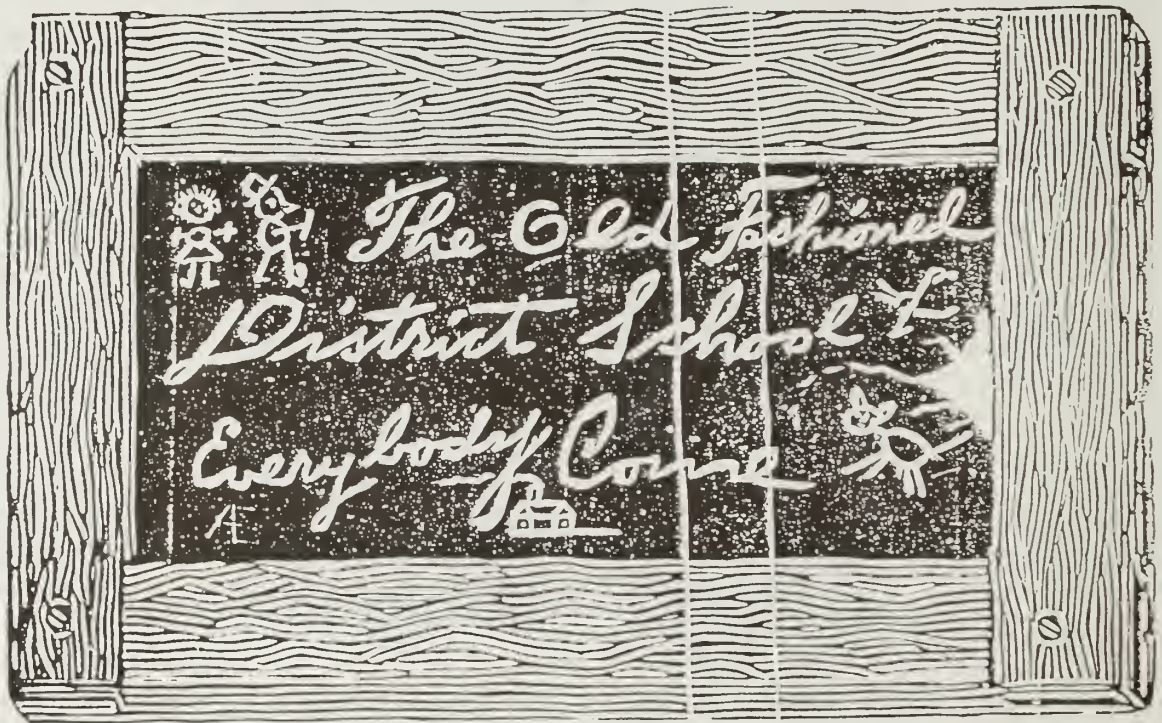 The Old Fashioned
District School
Everybody Come